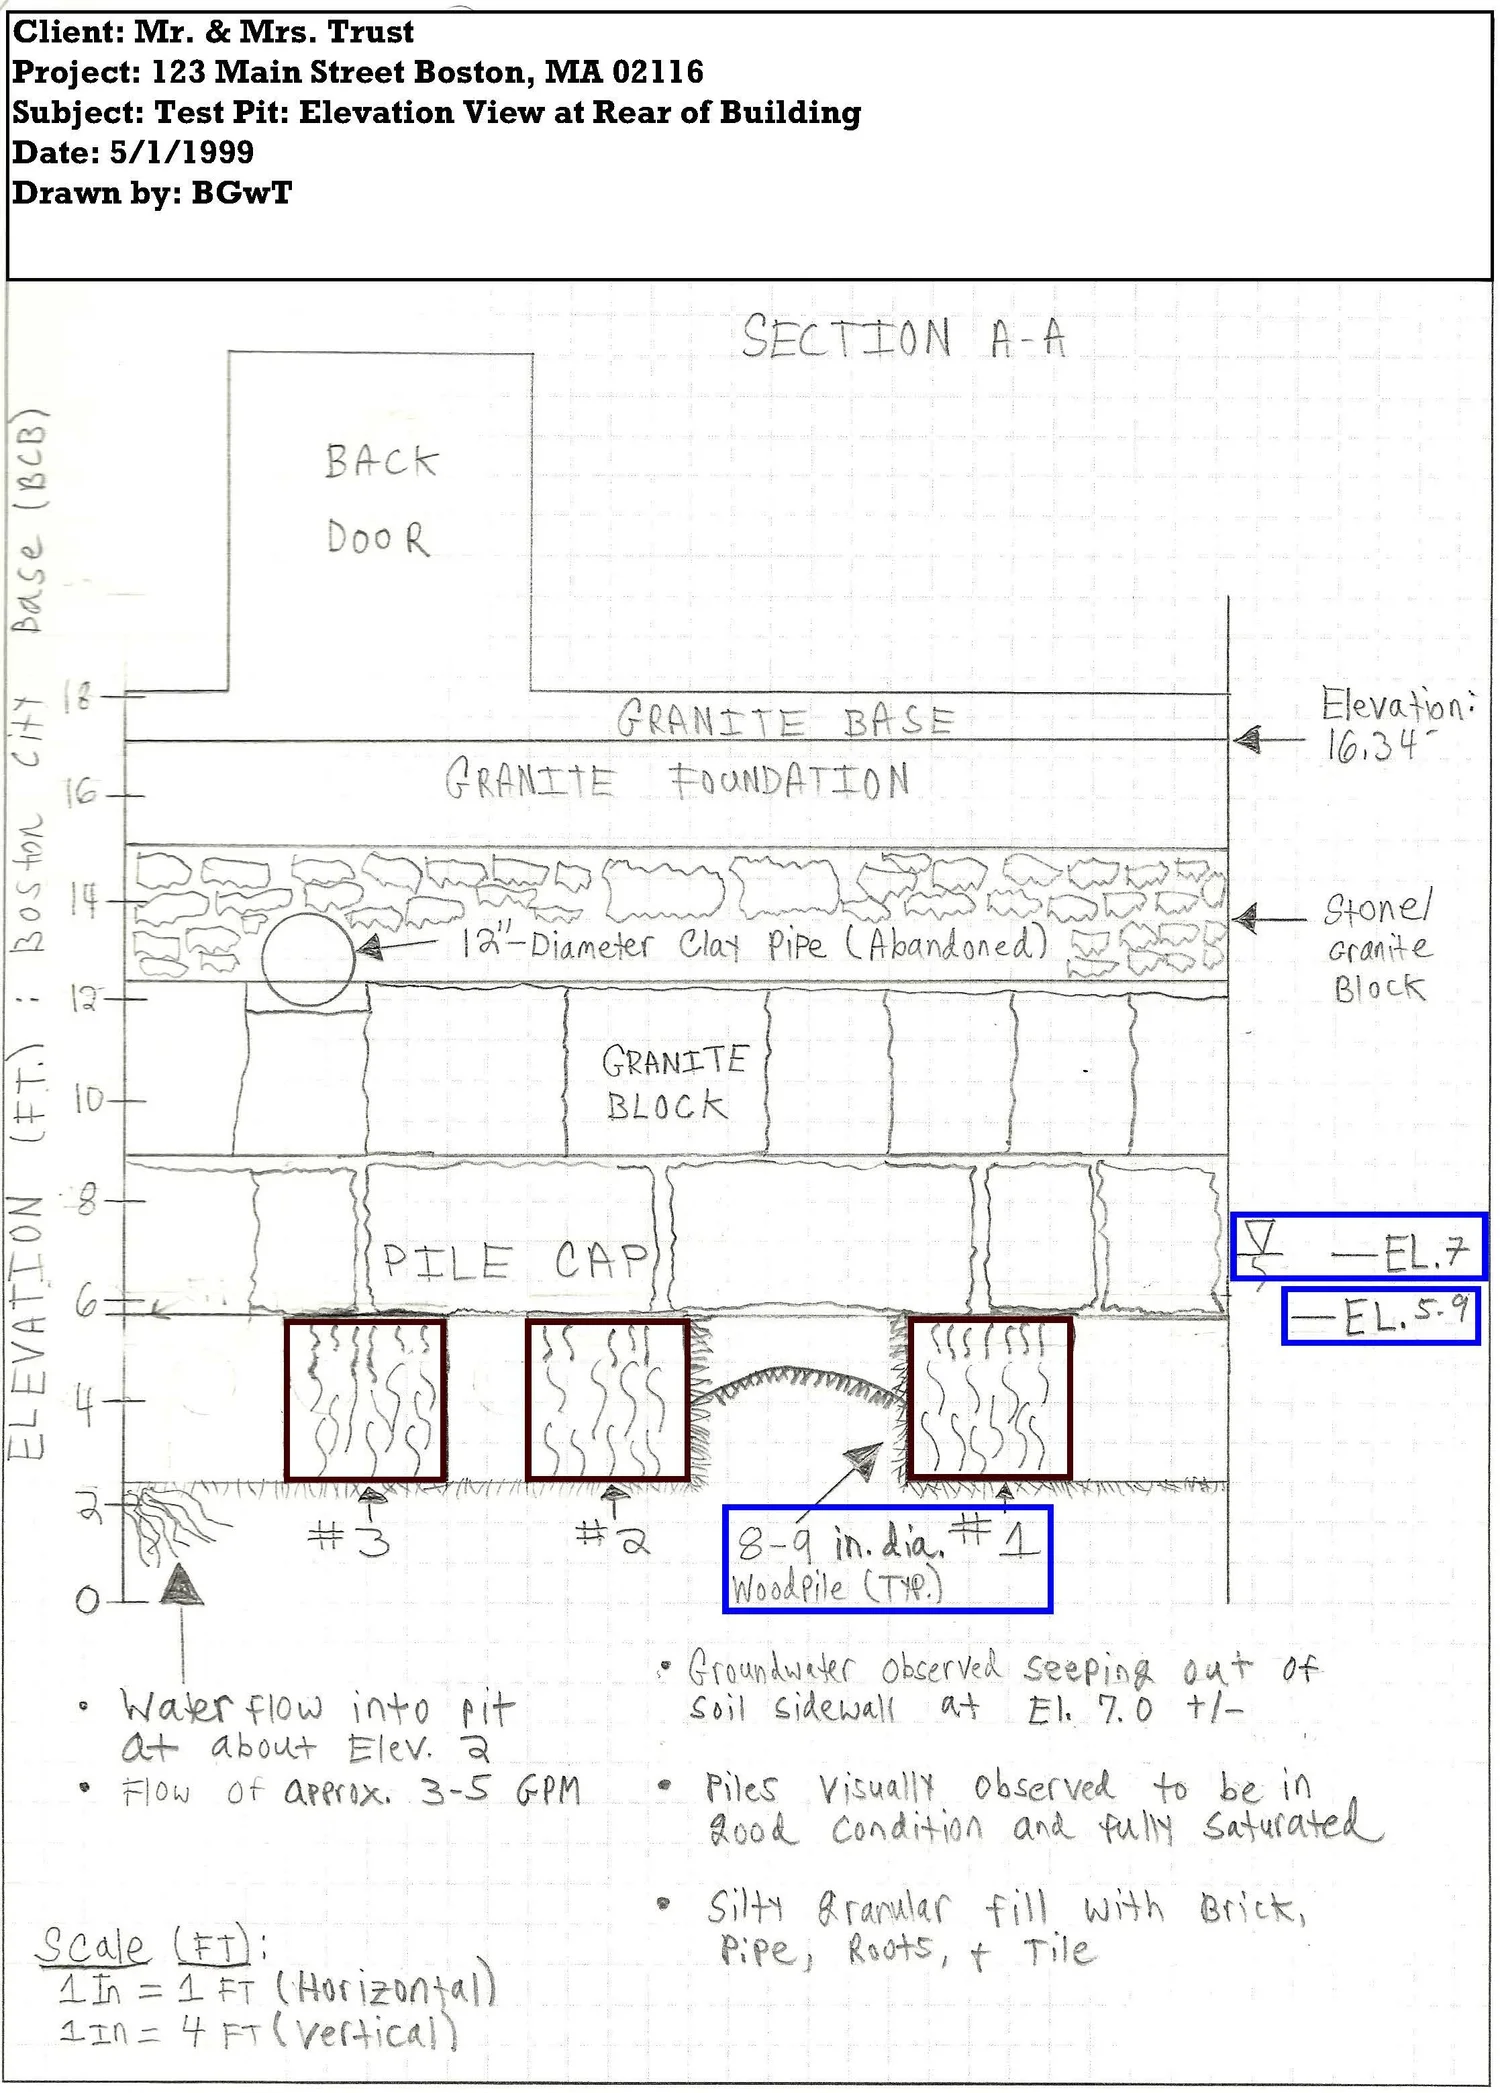 Client: Mr. & Mrs. Trust
Project: 123 Main Street Boston, MA 02116
Subject: Test Pit: Elevation View at Rear of Building
Date: 5/1/1999
Drawn by: BGwT
SECTION A-A
BACK
DOOR
ELEVATION (FT.) : Boston City Base (BCB)
18
16
14
12
10
8
6
4
2
0
GRANITE BASE
Elevation:
16.34
GRANITE FOUNDATION
12"-Diameter Clay Pipe (Abandoned)
Stone/
Granite
Block
GRANITE
BLOCK
PILE CAP
EL.7
EL. 5.9
#3
#2
#1
8-9 in. dia.
Woodpile (TYP.)
• Water flow into pit
at about Elev. 2
• Flow of approx. 3-5 GPM
• Groundwater observed seeping out of
soil sidewall at El. 7.0 +/-
• Piles visually observed to be in
good condition and fully saturated
• Silty granular fill with Brick,
Pipe, Roots, + Tile
Scale (FT):
1 In = 1 FT (Horizontal)
1 In = 4 FT (vertical)